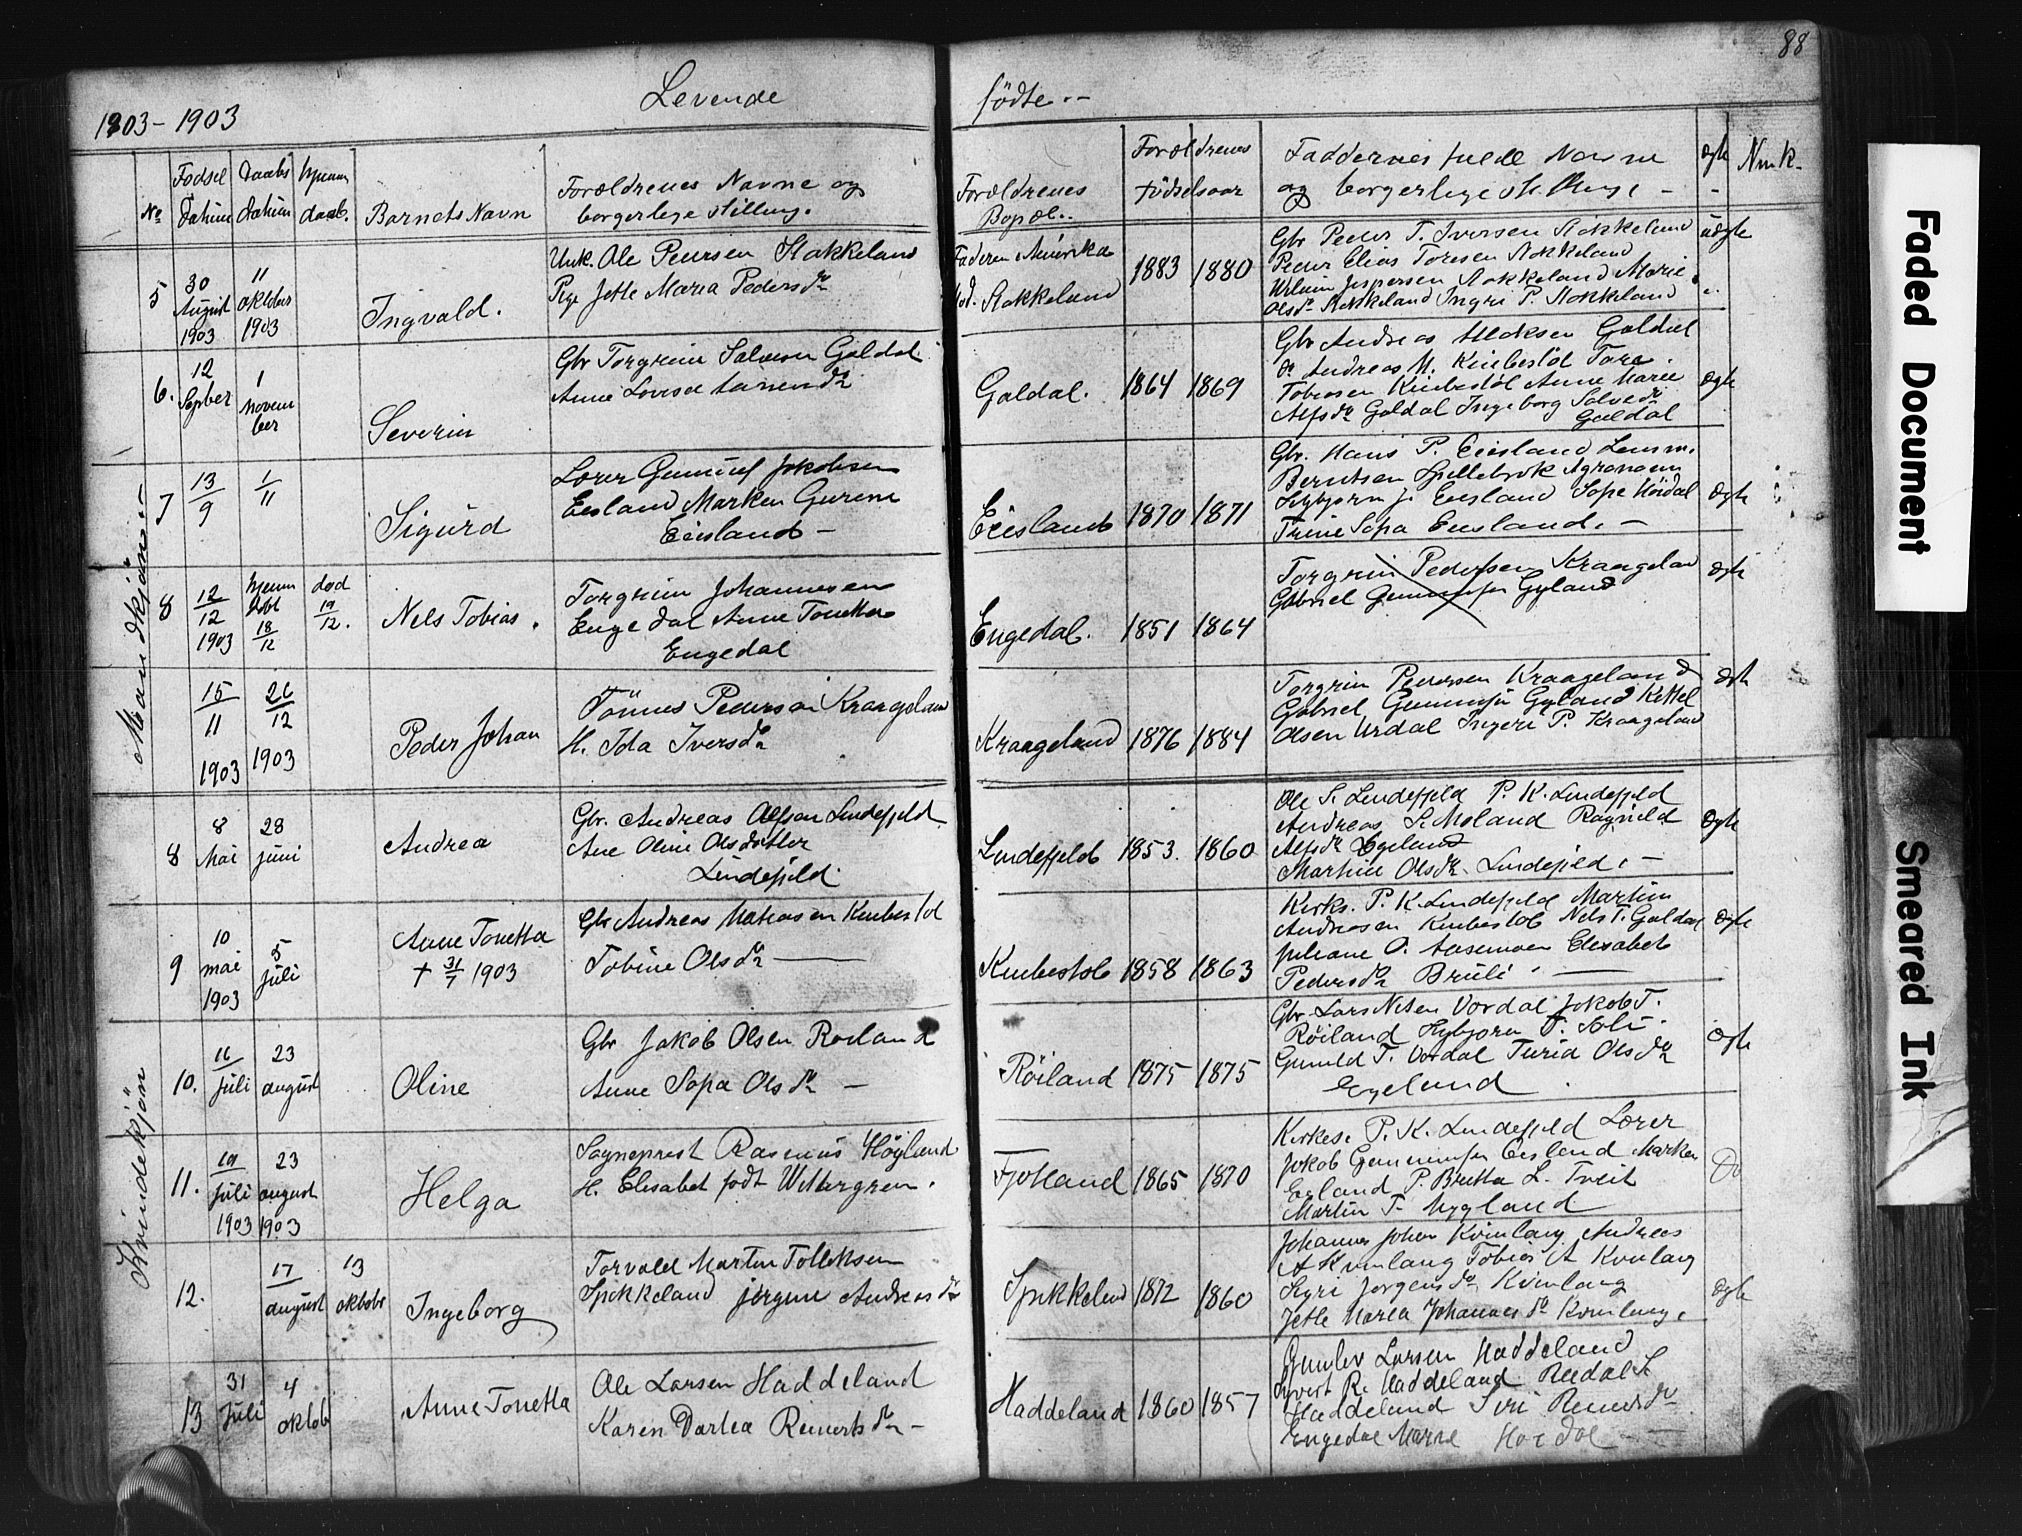 88
1903 - 1903
Levende
fødte.-
No
Fødsel
Datum
Daabs
datum
hjemme
daab.
Barnets Navn
Forældrenes Navne og
borgerlige stilling.
Forældrenes
Bopæl.
Forældrenes
fødselsaar
Faddernes fulde Navne
og borgerlige stilling -
ægte
-
Nmk.
Mandkjøn
5
30
August
1903
11
oktober
1903
Ingvald.
Unk. Ole Peersen Stakkeland
Pige Jetle Maria Pedersdr
Faderen Amerika
Mod. Stakkeland
1883 1880
Gbr Peder T. Iversen Stokkeland
Peder Elias Toresen Stokkeland
Jespersen Stokkeland Marie
Olsdr Stokkeland Ingri P. Stokkeland
uægte
6.
12
Septber
1
novem
ber
Severin
Gbr Torgrim Salvesen Galdal
Anne Lovise Larsensdr
Galdal.
1864 1869
Gbr Andreas Galdal
do Andreas M. Knibestøl Tore
Tobiasen Knibestøl Anne Marie
Alfsdr Galdal Ingeborg Salvedr
Galdal
ægte
7
13/9
1/11
Sigurd
Lærer Gunnuf Jokobsen
Eesland Marken Gurine
Eiesland -
Eiesland
1870 1871
Gbr. Hans P. Eiesland Lensm.
Berntsen Spillebrok Agronom
Hybjorn J. Eiesland Sofie Höidal
Trine Sofa Eiesland. -
ægte
8
12/12
1903
hjemme
døbt
18/12
død
19/12.
Nels Tobias.
Torgrim Johannesen
Engedal Anne Tonetta
Engedal
Engedal.
1851 1864
Torgrim Pedersen Kraageland
Gabriel Gunnufsen Gyland
ægte
15/11
1903
26/12
1903
Peder Johan
Tönnes Pedersen Kraageland
H. Ida Iversdr
Kraageland
1876 1884
Torgrim Pedersen Kraageland
Gabriel Gunnufsen Gyland Kettel
Olsen Urdal Ingeri P. Kraageland
ægte
Kvindekjön
8
8
Mai
28
juni
Andrea
Gbr. Andreas Alfson Lindefjeld
Ane Oline Olsdatter
Lindefjeld
Lindefjeld
1853. 1860
Ole S. Lindefjeld P. K. Lindefjeld
Andreas S. Moland Ragnild
Alfsdr Egeland
Martine Olsdr. Lindefjeld. -
ægte
9
10
mai
1903
5
juli
Anne Tonetta
† 31/7 1903
Gbr Andreas Matiasen Knibestøl
Tobine Olsdr
Knibestøl
1858 1863
Kirks. P. K. Lindefjeld Martin
Andreasen Knibestøl Nels T. Galdal
Juliane O. Aasemoen Elisabet
Pedersdr Bruli
ægte
10.
16
juli
23
august
Oline
Gbr Jakob Olsen Röiland
Anne Sofa Olsdr -
Röiland
1875 1875
Gbr Lars Nelsen Vordal Jokob T.
Röiland Hybjorn T. Soli
Gunuld T. Vordal Turid Olsdr
Egeland
ægte
11.
19
juli
1903
23
august
1903
Helga
Sogneprest Rasmus Høyland
H. Elisabet født Wettergren.
Fjotland
1865 1870
Kirkes. P. K. Lindefjeld Lærer
Jokob Gunnufsen Eesland Marken
Eesland P. Britta L. Tveit
Martin T. Nygland
Do
12.
17
august
13
oktober
Ingeborg
Torvald Martin Tolleksen
Spikkeland Jorgine Andreasdr
Spikkeland
1872 1860
Johannes Johan Kvinlaug Andreas
A Kvinlaug Tobias A Kvinlaug
Siyri Jorgensdr Kvinlaug
Jetle Maria Johannesdr Kvinlaug.
ægte
13
31
Juli
4
oktob
Anne Tonetta
Ole Larsen Haddeland
Karen Dortea Reinertsdr -
Haddeland
1860 1857
Gunlev Larsen Haddeland
Syvert R. Haddeland Reidal S.
Haddeland Siri Reinertsdr
Engedal Marie Høidal
Faded Document
Smeared Ink